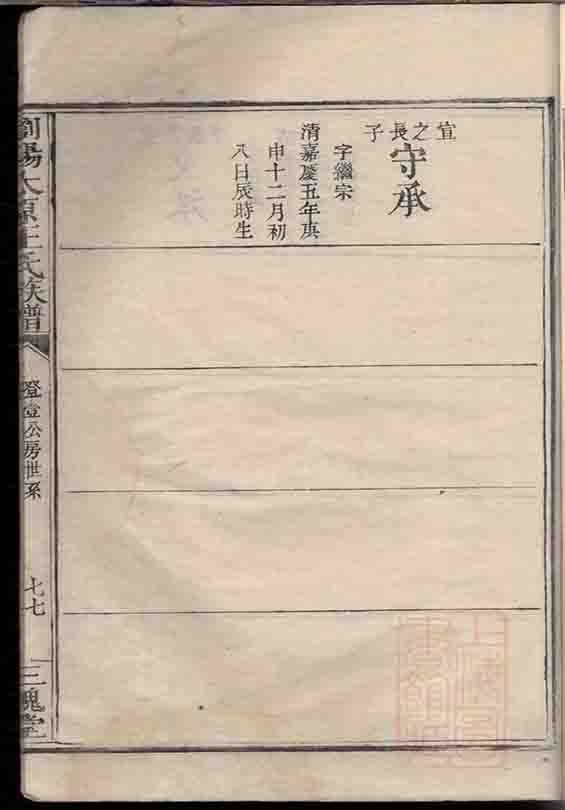 宣之長子
守承
字繼宗
清嘉慶五年庚
申十二月初
八日辰時生
瀏陽太原王氏族譜
登壹公房世系
七七
三槐堂